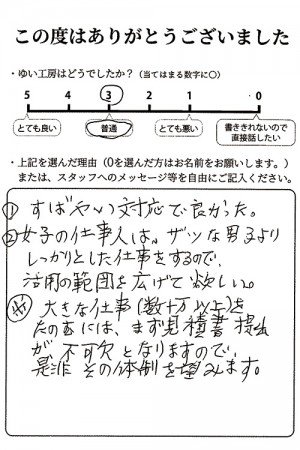 この度はありがとうございました
・ゆい工房はどうでしたか？（当てはまる数字に〇）
5 4 3 2 1 0
とても良い 普通 とても悪い 書ききれないので
直接話したい
・上記を選んだ理由（0を選んだ方はお名前をお願いします。）
または、スタッフへのメッセージ等を自由にご記入ください。
① すばやい対応で良かった。
②女子の仕事人は、ザツな男よりしっかりとした仕事をするので、
活用の範囲を広げて欲しい。
大きな仕事(数十万以上)を
たのむには、まず見積書提出
が、不可欠となりますので、
是非その体制を望みます。